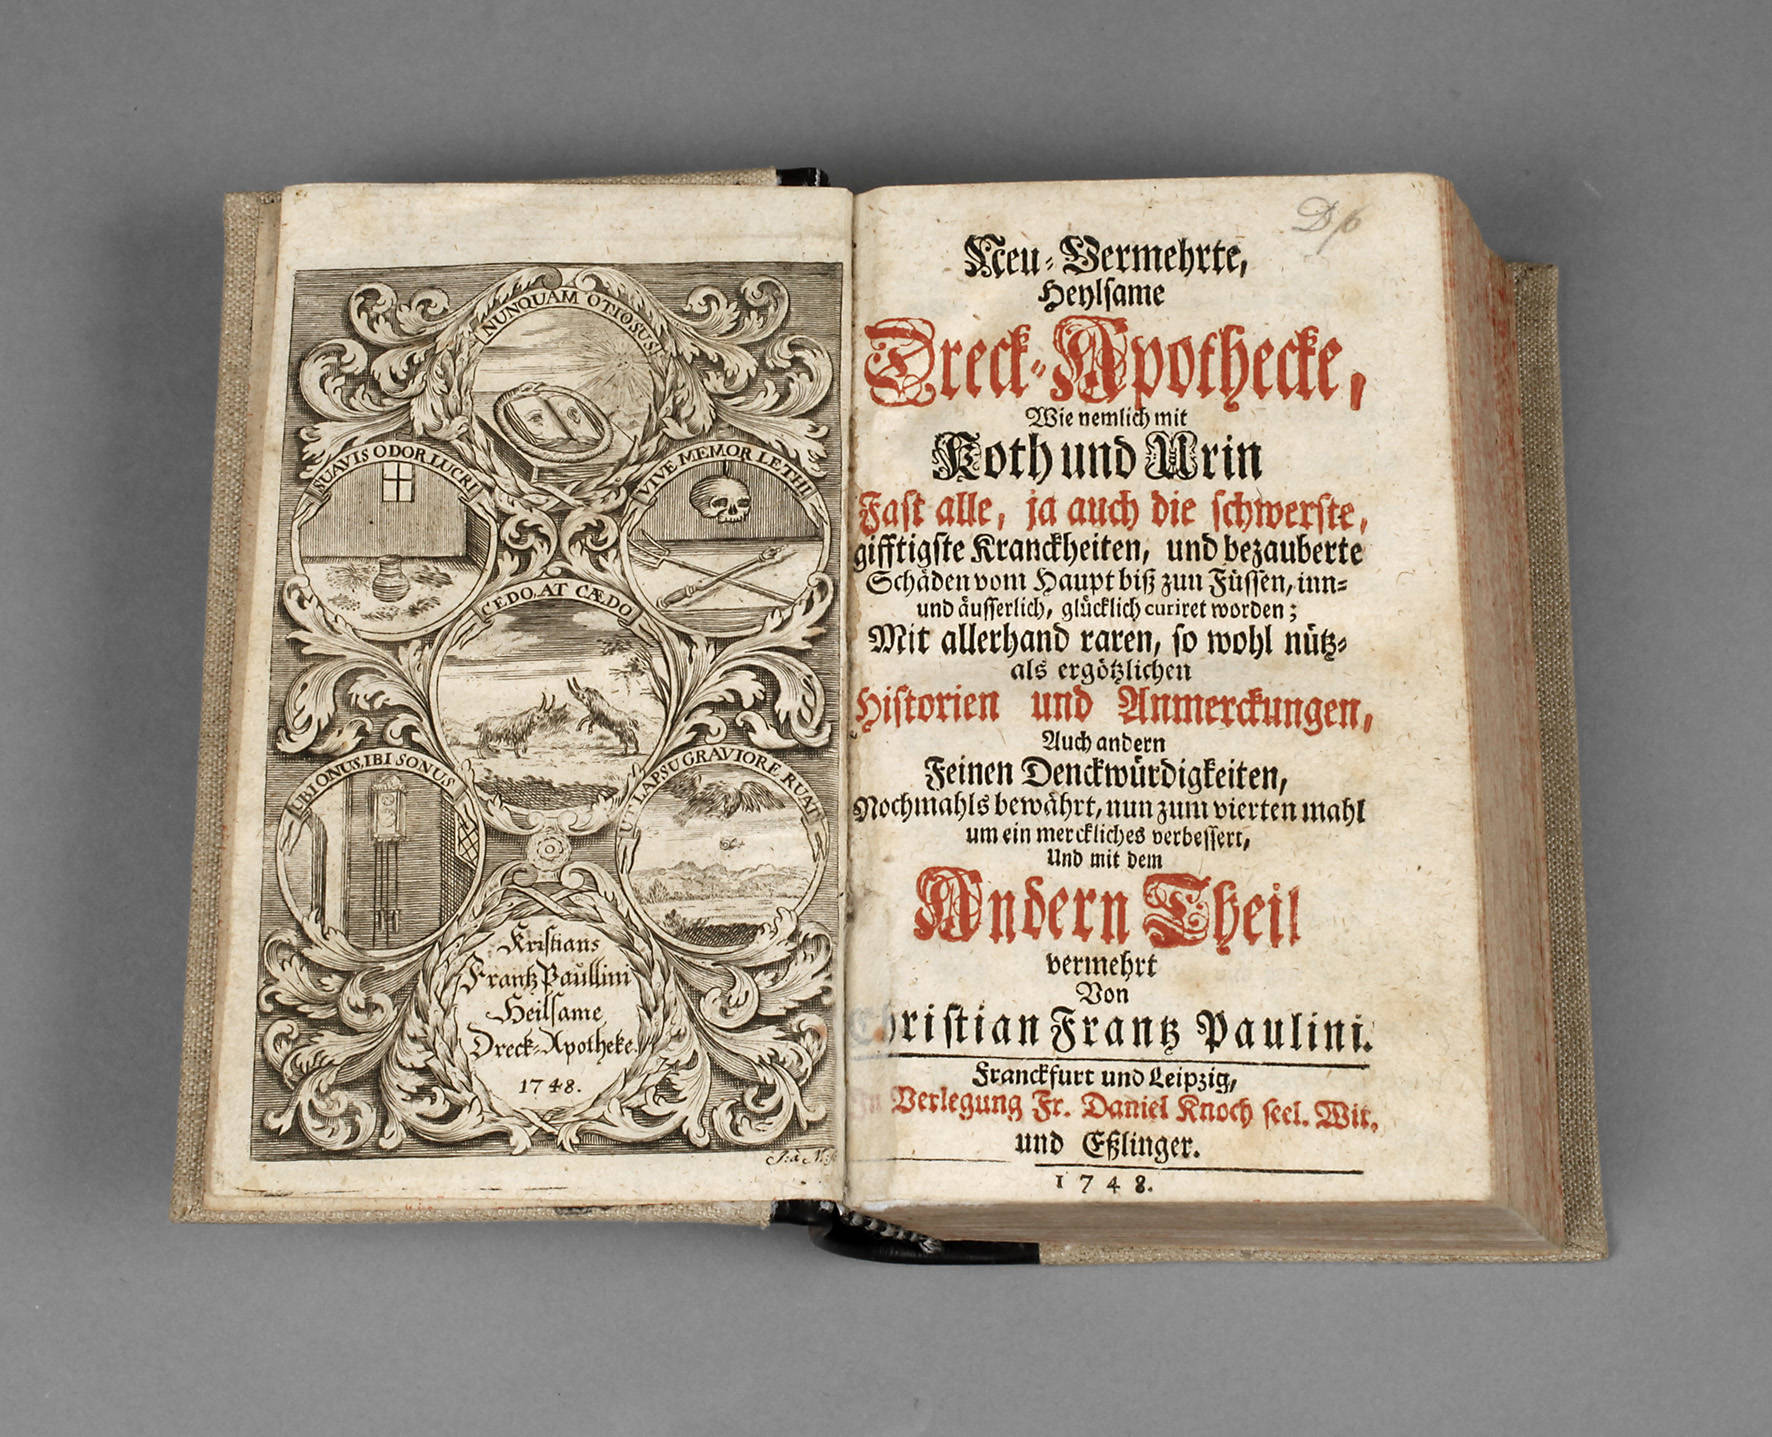 NUNQUAM OTIOSUS
SUAVIS ODOR LUCRI
VIVE MEMOR LETHI
CEDO, AT CÆDO
UBI ONUS, IBI SONUS
UT LAPSU GRAVIORE RUAT
Kristians
Frantz Paullini
Heilsame
Dreck-Apotheke.
1748.
Neu-Vermehrte,
Heylsame
Dreck-Apothecke,
Wie nemlich mit
Koth und Urin
Fast alle, ja auch die schwerste,
gifftigste Kranckheiten, und bezauberte
Schäden vom Haupt biß zun Füssen, inn-
und äusserlich, glücklich curiret worden;
Mit allerhand raren, so wohl nütz-
als ergötzlichen
Historien und Anmerckungen,
Auch andern
Feinen Denckwürdigkeiten,
Nochmahls bewährt, nun zum vierten mahl
um ein merckliches verbessert,
Und mit dem
Andern Theil
vermehrt
Von
Christian Frantz Paulini.
Franckfurt und Leipzig,
In Verlegung Fr. Daniel Knoch seel. Wit.
und Eßlinger.
1748.